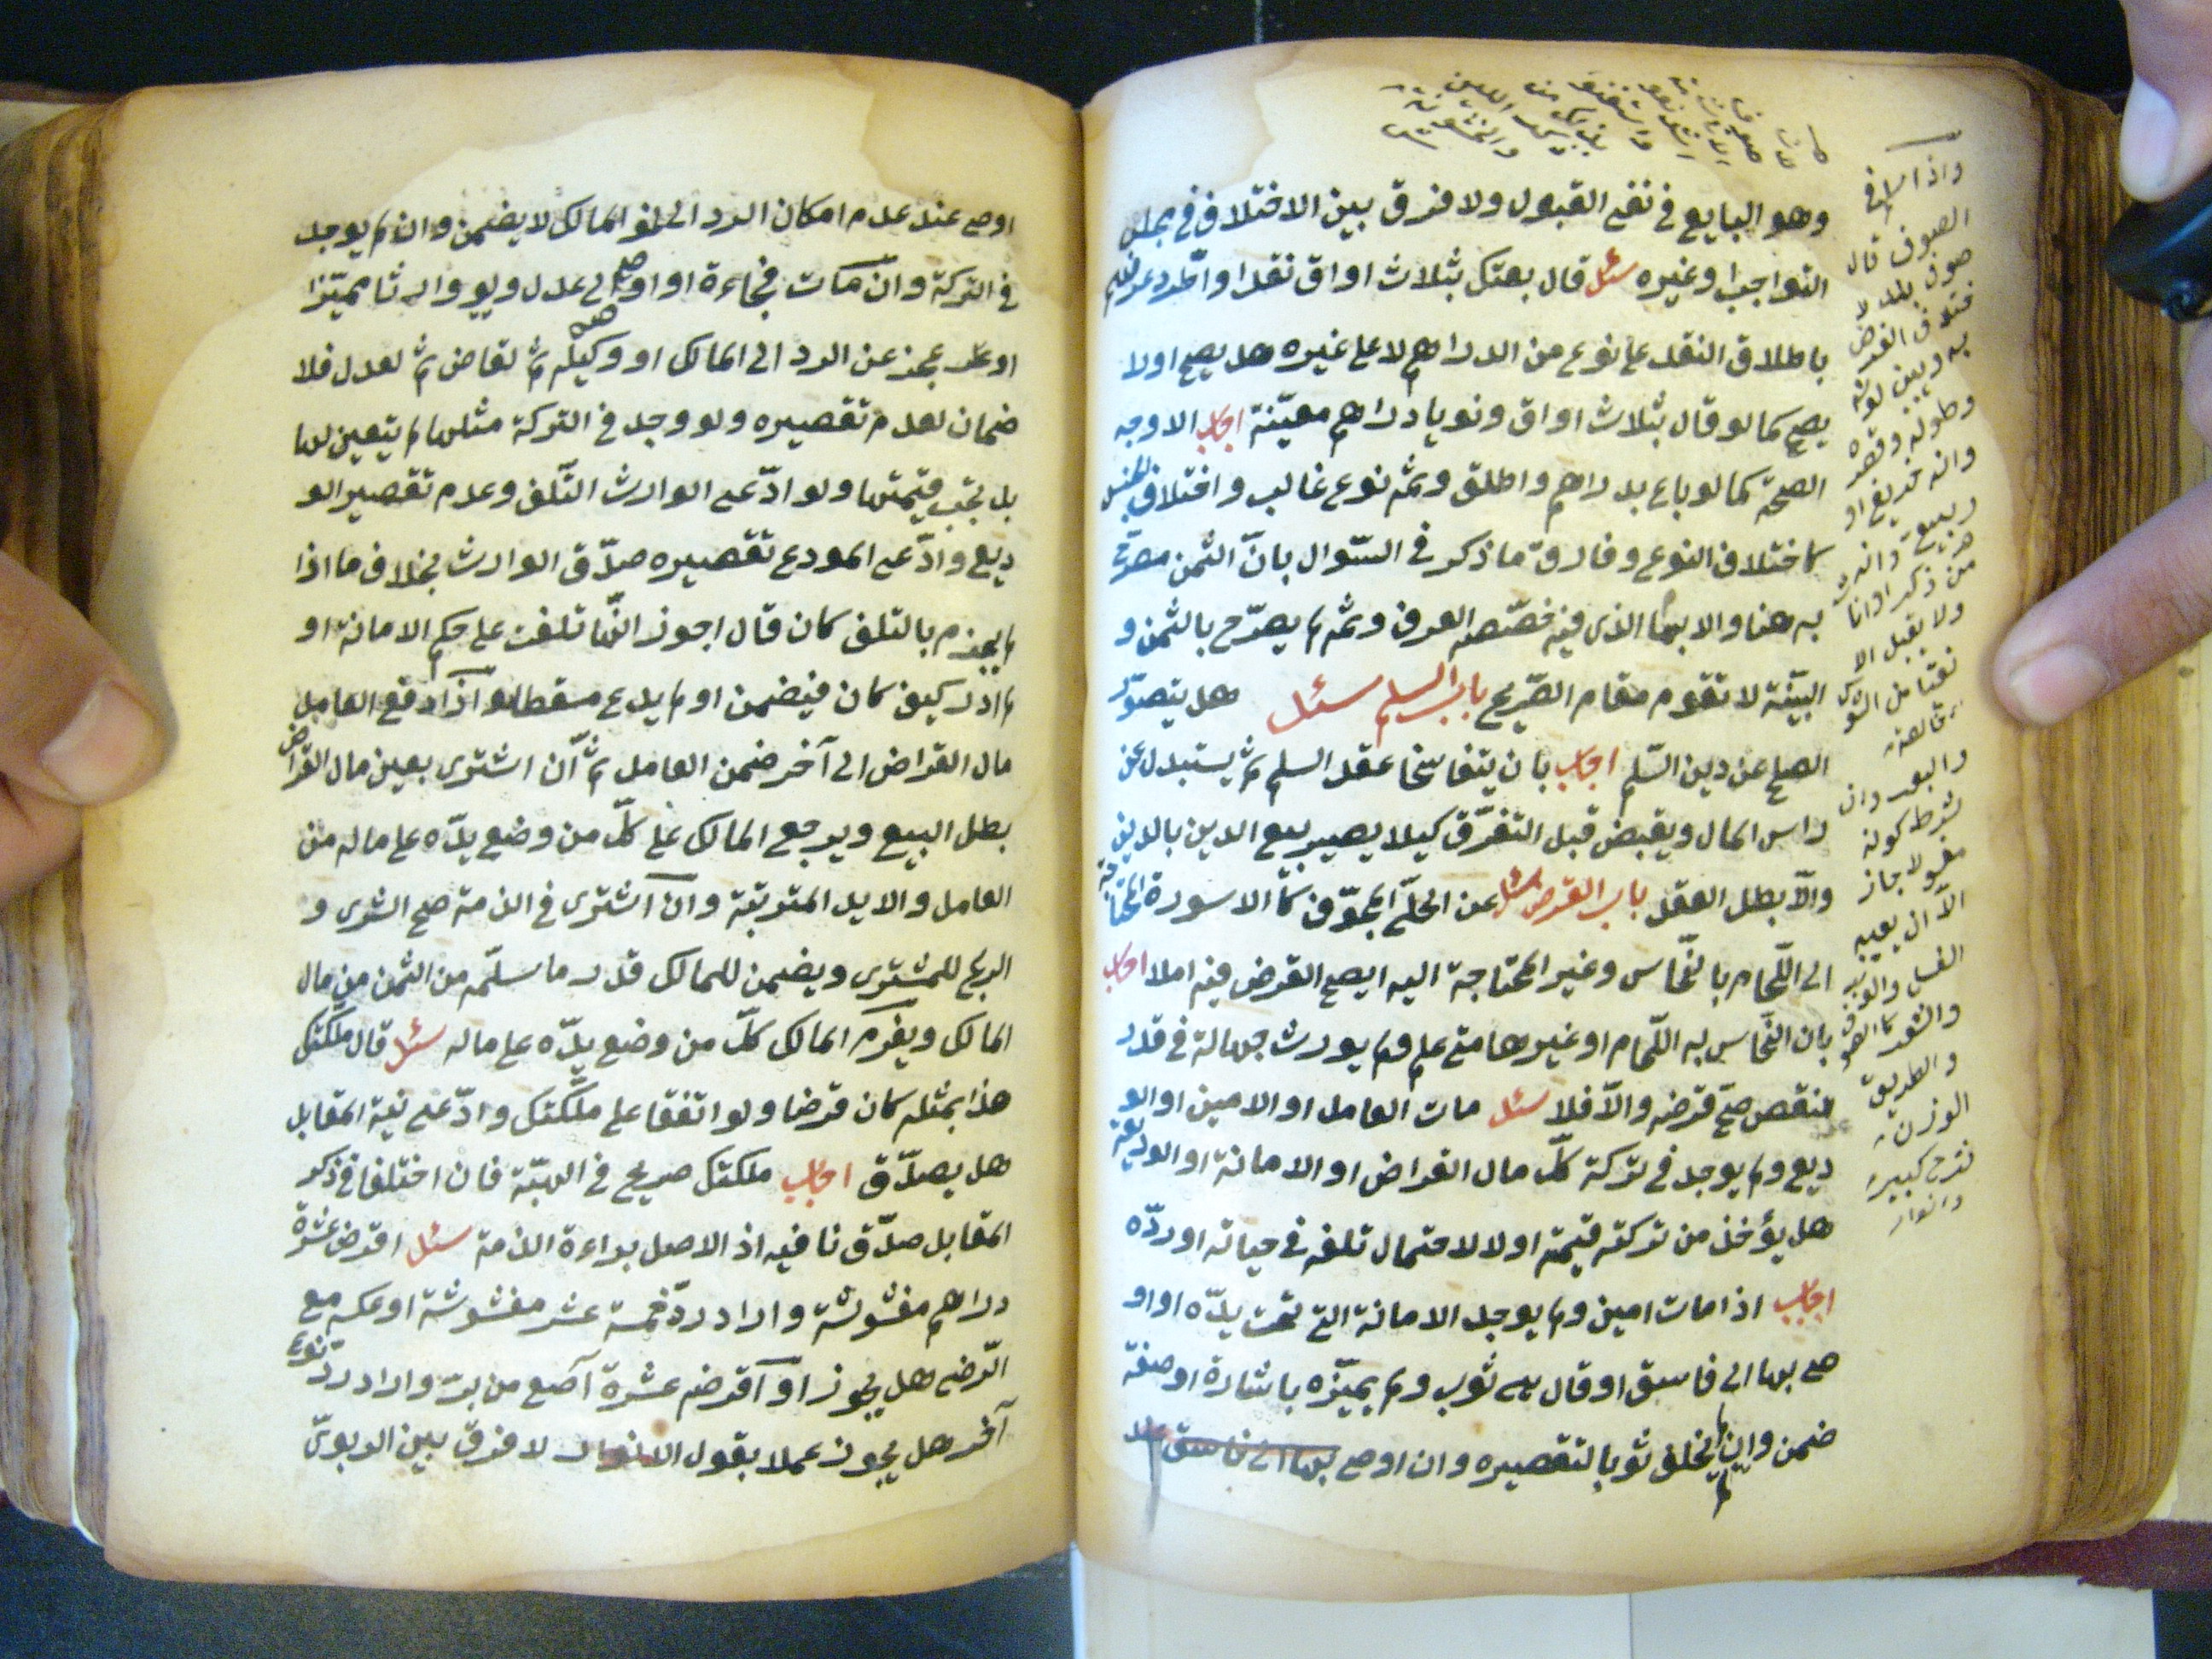 وهو البايع في نفي القبول ولا فرق بين الاختلاف في مجلس
التواجب وغيره سئل قال بعتك بثلاث اواق نقدا واطرد عرفهم
باطلاق النقد على نوع من الدراهم لا على غيره هل يصح او لا
يصح كما لو قال بثلاث اواق ونويا دراهم معيّنة اجاب الاوجه
الصحة كما لو باع بدراهم واطلق وثم نوع غالب واختلاف الجنس
كاختلاف النوع وفارق ما ذكر في السّوال بانّ الثمن مصرّح
به هنا والابهام الذى فيه خصّصه العرف وثمه لم يصرّح بالثمن و
النيّة لا تقوم مقام الصّريح باب السلم سئل هل يتصوّر
الصلح عن دين السّلم اجاب بان يتفاسخا عقد السلم ثم يستبدل عن
راس المال ويقبض قبل التفرّق كيلا يصير بيع الدين بالدين
والّا بطل العقد باب القرض سئل عن الحلّي المجوّف كالاسورة المحتاجة
الى اللّحام بالنّحاس وغير المحتاجة اليه ايصح القرض فيه ام لا اجاب
بان النّحاس به اللّحام او غيرها متى علم ولم يورث جهالة في قدر
لنقص صحّ قرضه والّا فلا سئل مات العامل او الامين او الو
ديع ولم يوجد في تركة كلّ مال القراض او الامانة او الوديعة
هل يؤخذ من تركته قيمته او لا لاحتمال تلفه في حياته او ردّه
اجاب اذا مات امين ولم يوجد الامانة التى تحت يدّه او او
صى بها الى فاسق او قال هى ثوب ولم يميّزه باشارة او صفة
ضمن وان لم يخلف ثوبا لتقصيره وان اوصى بها الى فاسق
واذا اسلم في
الصوف قال
صوف بلد لا
ختلاف الغرض
به ويبين لونه
وطوله وقصره
وانه خريفى او
ربيعى وانه
من ذكر او اناث
ولا يقبل الا
نقيّا من الشوك
والبعر وان
شرط كونه
مغسولا جاز
الّا ان يعيبه
الغسل والوبر
والشعر كالصوف
والطريق
الوزن
شرح كبير
وانوار
اوصى عند عدم امكان الرد الى نحو المالك لا يضمن وان لم يوجد
في التركة وان مات فجاءة او اوصى الى عدل ولو وارثا مميّزا
او عند عجز عن الرد الى المالك او وكيله ثم لقاض ثم لعدل فلا
ضمان لعدم تقصيره ولو وجد في التركة مثلها لم يتعين لها
بل تجب قيمتها ولو ادّعى الوارث التّلف وعدم تقصير الو
ديع وادّعى المودع تقصيره صدّق الوارث بخلاف ما اذا
لم يجزم بالتلف كان قال اجوز انّها تلفت على حكم الامانة او
لم ادر كيف كان فيضمن او لم يدع مسقطا واذا دفع العامل
مال القراض الى آخر ضمن العامل ثم ان اشترى بعين مال القراض
بطل البيع ويرجع المالك على كلّ من وضع يدّه على ماله من
العامل والايد المترتبة وان اشترى في الذمة صح الشرى و
الربح للمشترى ويضمن للمالك قدر ما سلّمه من الثمن من مال
المالك ويغرم المالك كلّ من وضع يدّه على ماله سئل قال ملكتك
هذا بمثله كان قرضا ولو اتفقا على ملّكتك وادّعى نية المقابل
هل يصدّق اجاب ملكتك صريح في الهبّة فان اختلفا في ذكر
المقابل صدّق نافيه اذ الاصل براءة الذمة سئل اقرض عشرة
دراهم مغشوشة واراد ردّ خمسة عشر مغشوشة او عكسه مع
الرّضى هل يجوز او اقرضه عشرة آصع من برّ واراد ردّ نوع
آخر هل يجوز عملا بقول الانوار لا فرق بين الربوىّ